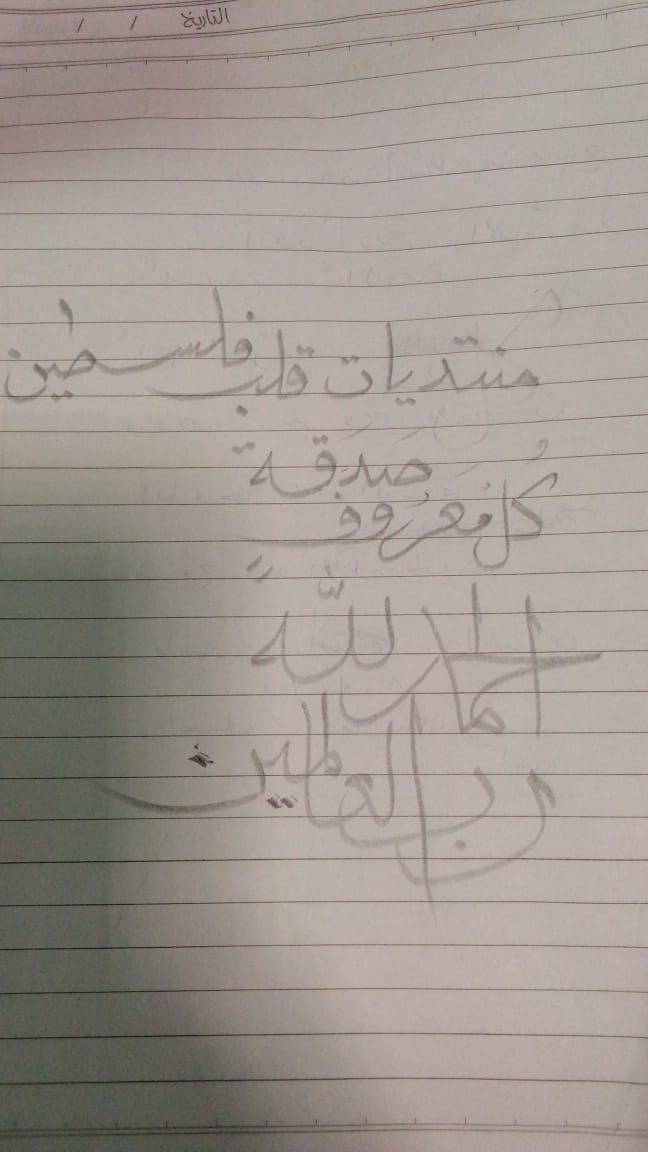 التاريخ / /
منتديات قلب فلسطين
صدقة
كُل مَعرُوفٍ
الحمد للّه
رب العالمين